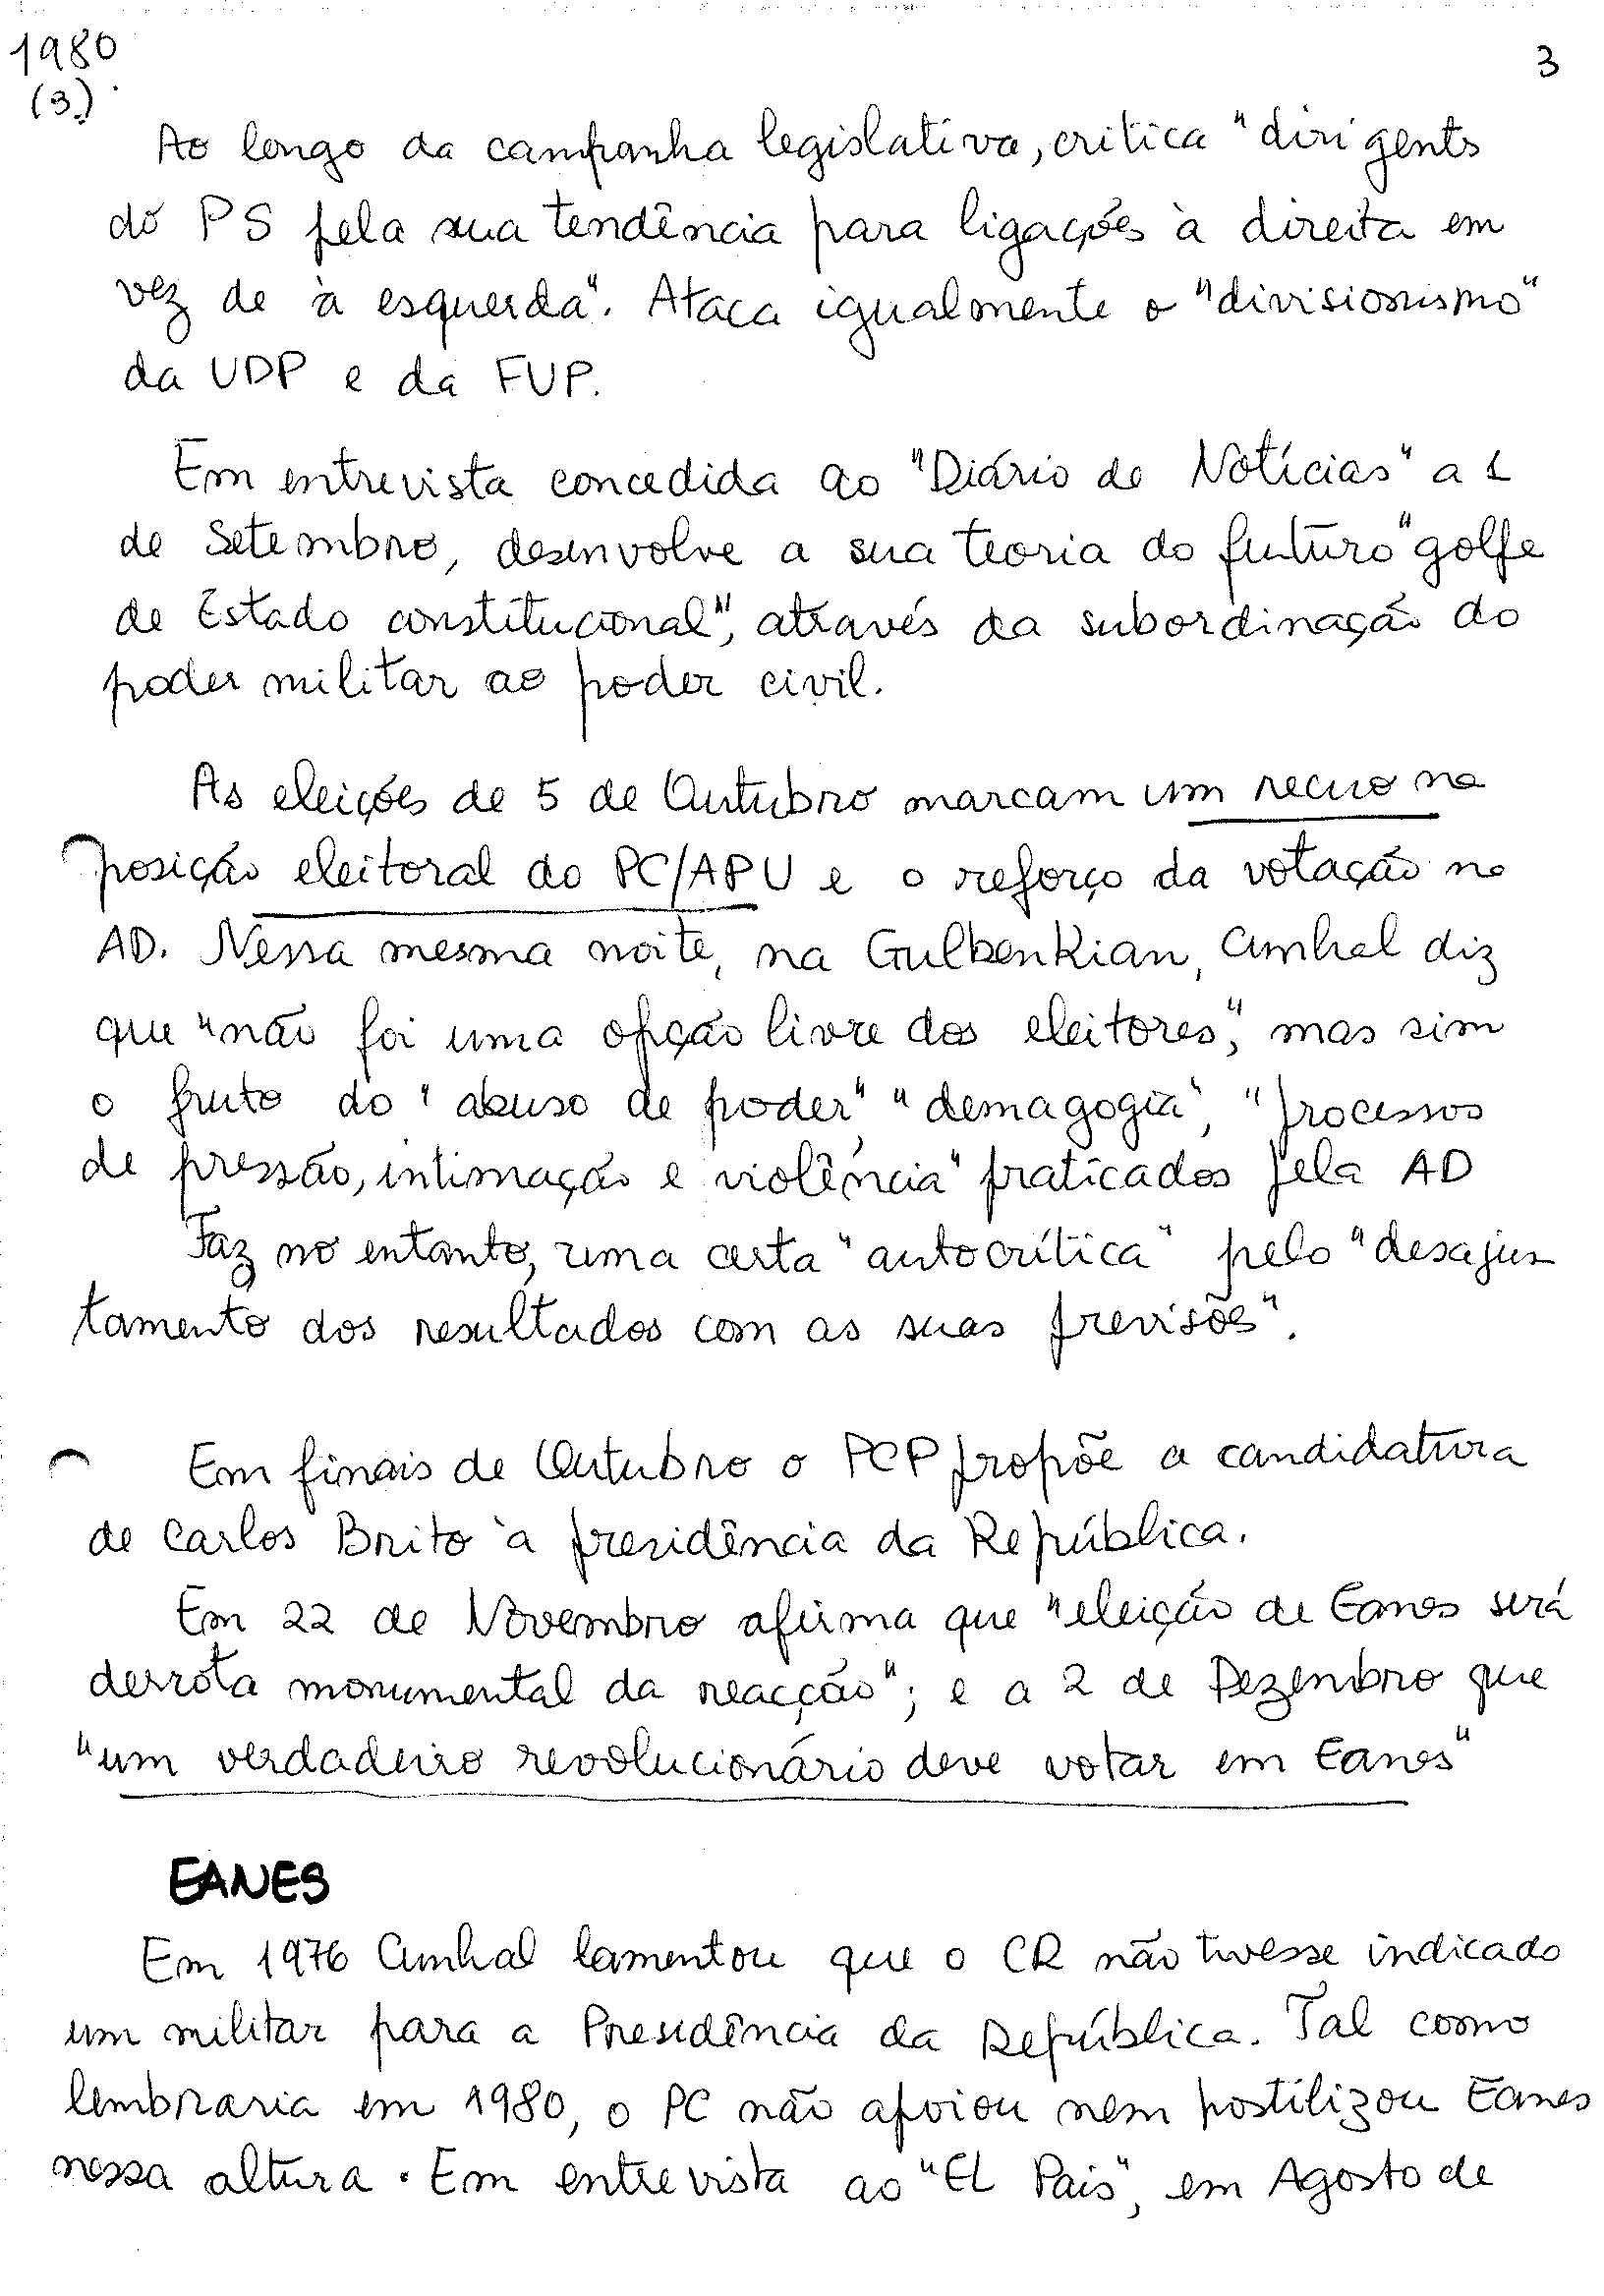 1980
3
(3.)
Ao longo da campanha legislativa, critica "dirigents
do PS pela sua tendência para ligações à direita em
vez de à esquerda". Ataca igualmente o "divisionismo"
da UDP e da FUP.
Em entrevista concedida ao "Diário de Notícias" a 1
de Setembro, desenvolve a sua teoria do futuro "golpe
de Estado constitucional", através da subordinação do
poder militar ao poder civil.
As eleições de 5 de Outubro marcam um recuo na
posição eleitoral do PC/APU e o reforço da votação na
AD. Nessa mesma noite, na Gulbenkian, Cunhal diz
que "não foi uma opção livre dos eleitores", mas sim
o fruto do "abuso de poder", "demagogia", "processos
de pressão, intimação e violência" praticados pela AD
Faz no entanto, uma certa "autocrítica" pelo "desajus
tamento dos resultados com as suas previsões".
Em finais de Outubro o PCP propõe a candidatura
de Carlos Brito à presidência da República.
Em 22 de Novembro afirma que "eleição de Eanes será
derrota monumental da reacção"; e a 2 de Dezembro que
"um verdadeiro revolucionário deve votar em Eanes"
EANES
Em 1976 Cunhal lamentou que o CR não tivesse indicado
um militar para a Presidência da República. Tal como
lembraria em 1980, o PC não apoiou nem hostilizou Eanes
nessa altura. Em entrevista ao "El Pais", em Agosto de